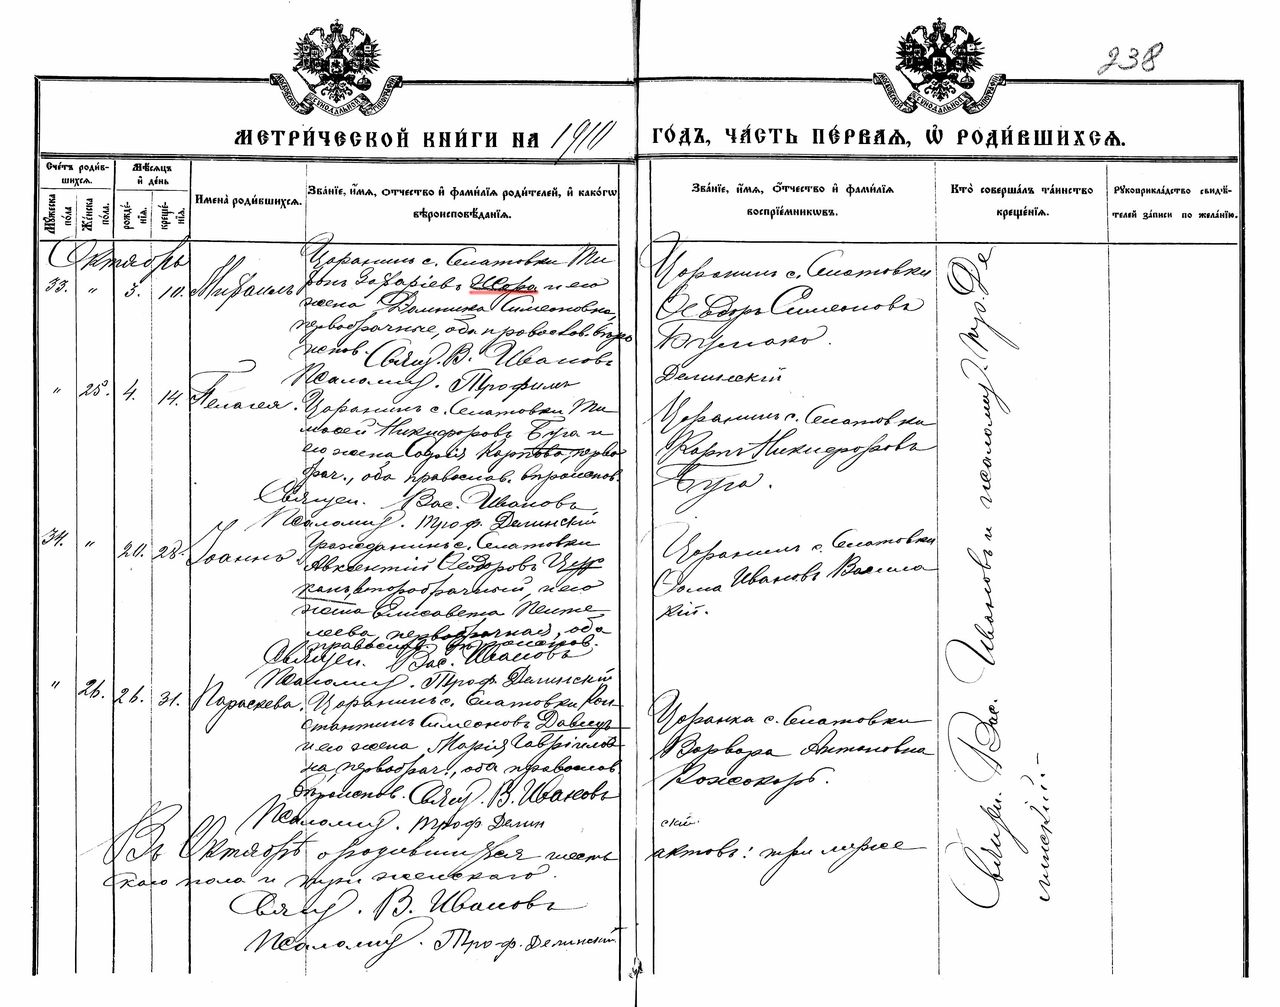 238
МЕТРИ́ЧЕСКОЙ КНИ́ГИ НА 1910 ГО́ДЪ, ЧА́СТЬ ПЕ́РВАЯ, Ѡ РОДИ́ВШИХСЯ.
Сче́тъ роди́в-
шихся.
Му́жеска по́ла.
Же́нска по́ла.
Мѣ́сяцъ
и де́нь
рожде́-
нія.
креще́-
нія.
Имена̀ роди́вшихся.
Зва́ніе, и́мя, о́тчество и фами́лія роди́телей, и како́гѡ
вѣроисповѣ́данія.
Зва́ніе, и́мя, о́тчество и фами́лія
воспріе́мникѡвъ.
Кто̀ соверша́лъ та́инство
креще́нія.
Рукоприкла́дство свидѣ́-
телей за́писи по жела́нію.
Октябрь
33. " 3. 10. Михаилъ
Царанинъ с. Слатовки Ти-
фонъ Захаріевъ и его
жена Домника Симеоновна,
первобрачные, оба православ. вѣро
испов. Свящ. В. Ивановъ
Псаломщ. Трофимъ
Царанинъ с. Слатовки
Ѳеодоръ Симеоновъ
Делинскій
" 25. 4. 14. Пелагея.
Царанинъ с. Слатовки Ти-
мофей Никифоровъ Буга и
его жена Софія Карпова, перво
брач., оба православ. вѣроиспов.
Священ. Вас. Ивановъ
Псаломщ. Троф. Делинскій
Царанинъ с. Слатовки
Карпъ Никифоровъ
Буга.
34. " 20. 28. Іоаннъ.
Гражданинъ с. Слатовки
Авксентій Ѳеодоровъ
второбрачный, и его
жена Елисавета Панте-
леева, первобрачная, оба
православ. вѣроиспов.
Священ. Вас. Ивановъ
Псаломщ. Троф. Делинскій
Царанинъ с. Слатовки
Ѳома Ивановъ Васила
кій.
" 26. 26. 31. Параскева.
Царанинъ с. Слатовки Кон-
стантинъ Симеоновъ Давидъ
и его жена Марія Гавріилов-
на, первобрач., оба православ.
вѣроиспов. Свящ. В. Ивановъ
Псаломщ. Троф. Делин
Царанка с. Слатовки
Варвара Антоновна
Кожокарь.
скій
Въ Октябрѣ о родившихся шесть актовъ: три муже
скаго пола и три женскаго.
Свящ. В. Ивановъ
Псаломщ. Троф. Делинскій
Свящ. Вас. Ивановъ и псаломщ. Тр. Де
линскій